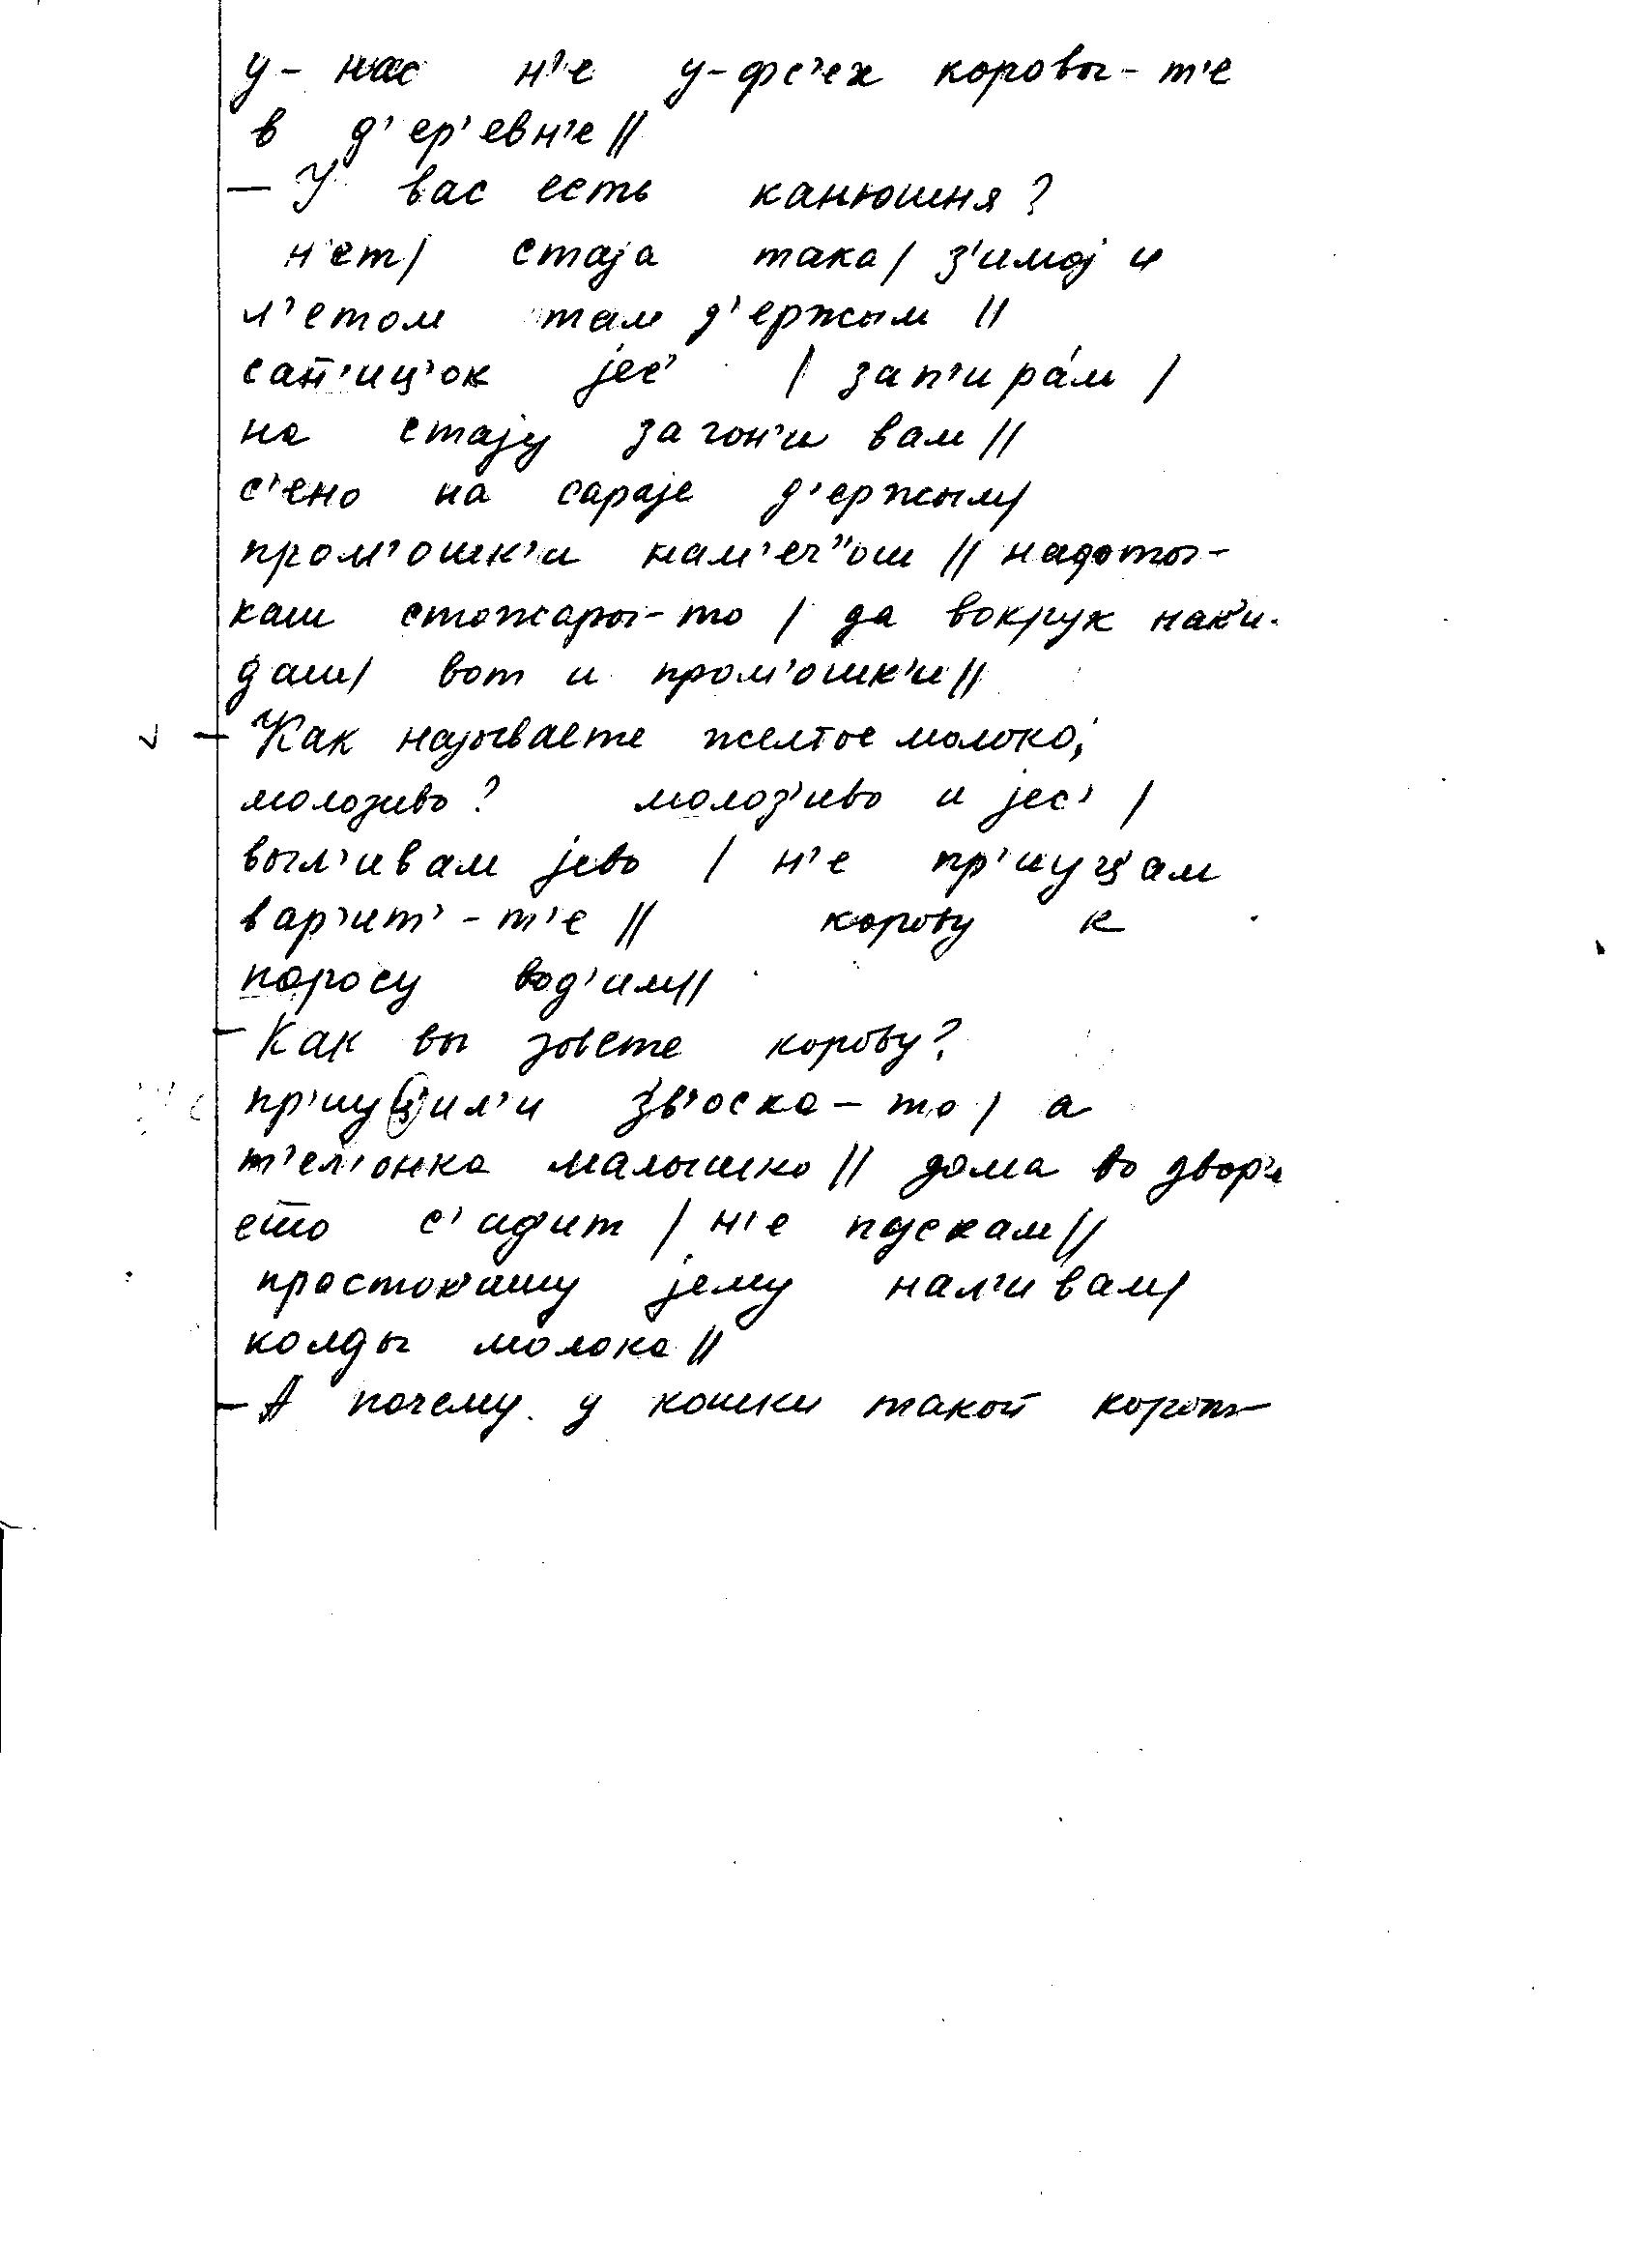 у- нас н'е у-фс'ех коровы-т'е
в д'ер'евн'е//
— У вас есть канюшня?
н'ет/ стаjа така/ з'имоj и
л'етом там д'ержым //
сап'иц'ок jес' / зап'ира́м /
на стаjу загон'и вам //
с'ено на сараjе д'ержым/
пром'ошк'и нам'еч"ош // надоты-
каш стожары-то / да вокрук нак'и-
даш/ вот и пром'ошк'и//
— Как называете желтое молоко,
молозиво? молоз'иво и jес' /
выл'ивам jево / н'е пр'иуц'ам
вар'ит'-т'е // корову к
поросу вод'им//
— Как вы зовете корову?
пр'иуц'ил'и зв'оска-то / а
т'ел'онка малышко // дома во двор'е
ето с'ид'ит / н'е пускам//
простоквашу jему нал'ивам/
колды молока //
— А почему у кошки такой корот-